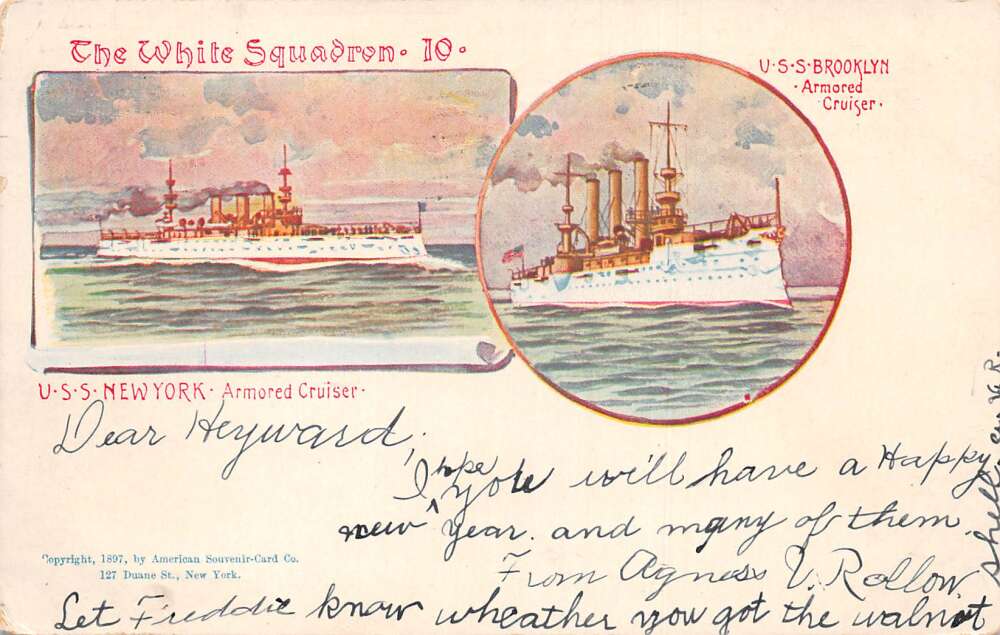 The White Squadron · 10 ·
U·S·S·BROOKLYN
·Armored
Cruiser·
U·S·S·NEW YORK· Armored Cruiser·
Dear Heyward,
I hope you will have a Happy
new year. and many of them
From Agness V. Rollow.
Let Freddie know wheather you got the walnut
shell
Copyright, 1897, by American Souvenir-Card Co.
127 Duane St., New York.